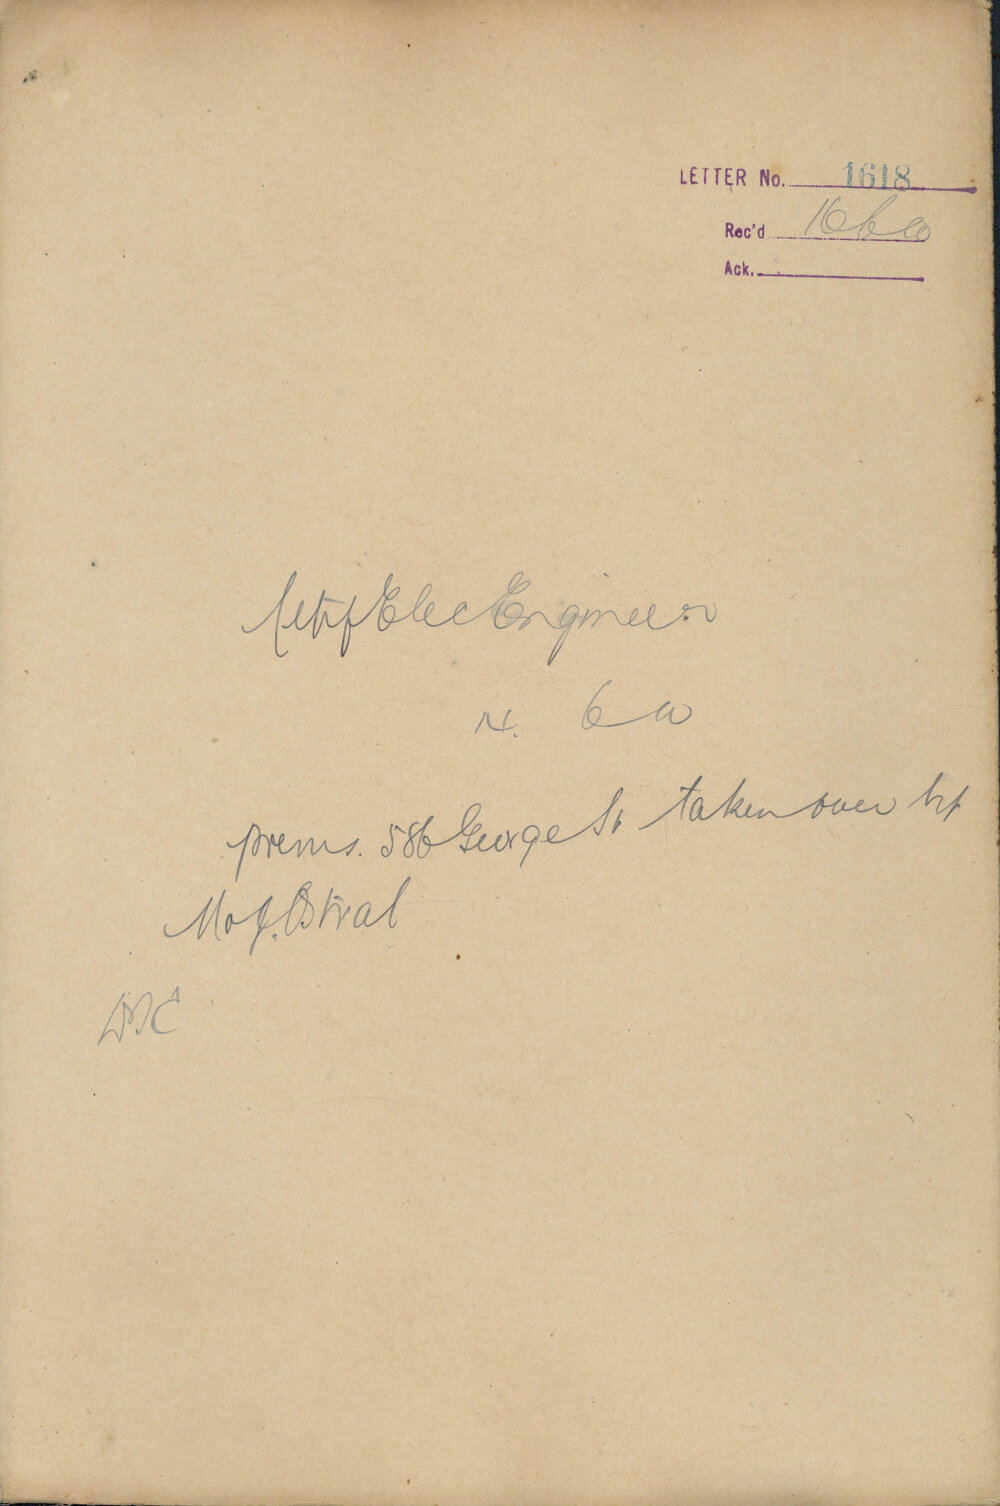 LETTER No. 1618
Rec'd 16 6 20
Ack.
City Elec Engineer
14. 6 20
prems. 586 George St taken over by
Mr J. Ostral